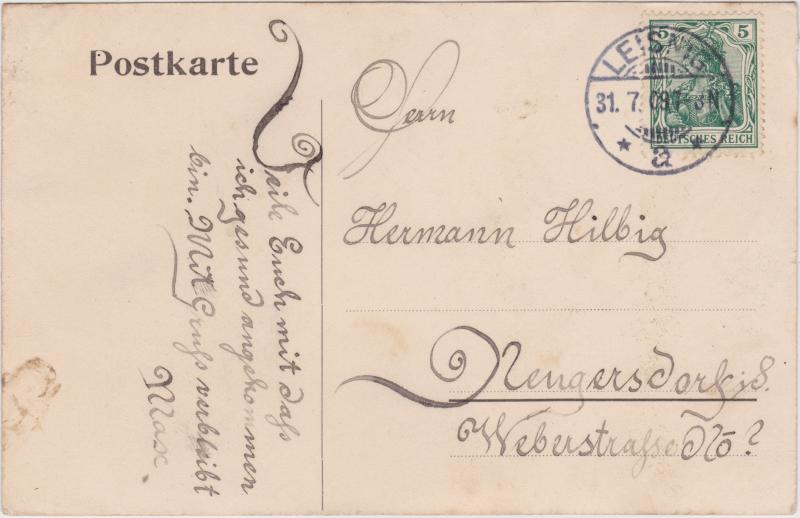 Postkarte
Teile Euch mit dass
ich gesund angekommen
bin. Mit Gruss verbleibt
Max.
Herrn
Hermann Hilbig
Neugersdorf i. S.
Weberstrasse No ?
5 5
DEUTSCHES REICH
LEISNIG
31. 7. 09. 7-8 N
* a *